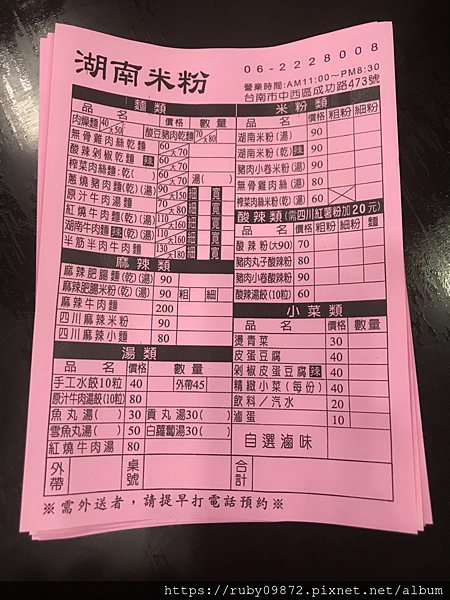 湖南米粉
06-2228008
營業時間:AM11:00~PM8:30
台南市中西區成功路473號
麵類
品名 價格 數量
肉燥麵 40 大50 酸豆豬肉乾麵 70 大80
無骨雞肉絲乾麵 60 大70
酸辣剁椒乾麵 辣 60 大70
榨菜肉絲麵:乾( ) 60 大70 湯( )
蔥燒豬肉麵(乾)(湯) 90 細 寬
原汁牛肉湯麵 70 細 寬
紅燒牛肉麵(乾)(湯) 110 大160 細 寬
湖南牛肉麵 辣 (乾)(湯) 110 大160 細 寬
半筋半肉牛肉麵 130 大180 細 寬
麻辣類
麻辣肥腸麵(乾)(湯) 90
麻辣肥腸米粉(乾)(湯) 90 粗 細
麻辣牛肉麵 200
四川麻辣米粉 90
四川麻辣小麵 80
湯類
品名 價格 數量
手工水餃10粒 40 外帶45
原汁牛肉湯餃(10粒) 80
魚丸湯( ) 30 貢丸湯30( )
雪魚丸湯( ) 50 白蘿蔔湯30( )
紅燒牛肉湯 80
外帶 桌號 合計
米粉類
品名 價格 粗粉 細粉
湖南米粉(湯) 90
湖南米粉(乾) 辣 90
豬肉小卷米粉(湯) 90
無骨雞肉絲(湯) 80
榨菜肉絲米粉(乾)(湯) 60
酸辣類(需四川紅薯粉加20元)
品名 價格 粗粉 細粉 麵
酸辣粉(大90) 70
豬肉丸子酸辣粉 90
豬肉小卷酸辣粉 90
酸辣湯餃(10粒) 60
小菜類
品名 價格 數量
燙青菜 30
皮蛋豆腐 40
剁椒皮蛋豆腐 辣 40
精緻小菜(每份) 40
飲料/汽水 20
滷蛋 10
自選滷味
※需外送者，請提早打電話預約※
https://ruby09872.pixnet.net/album